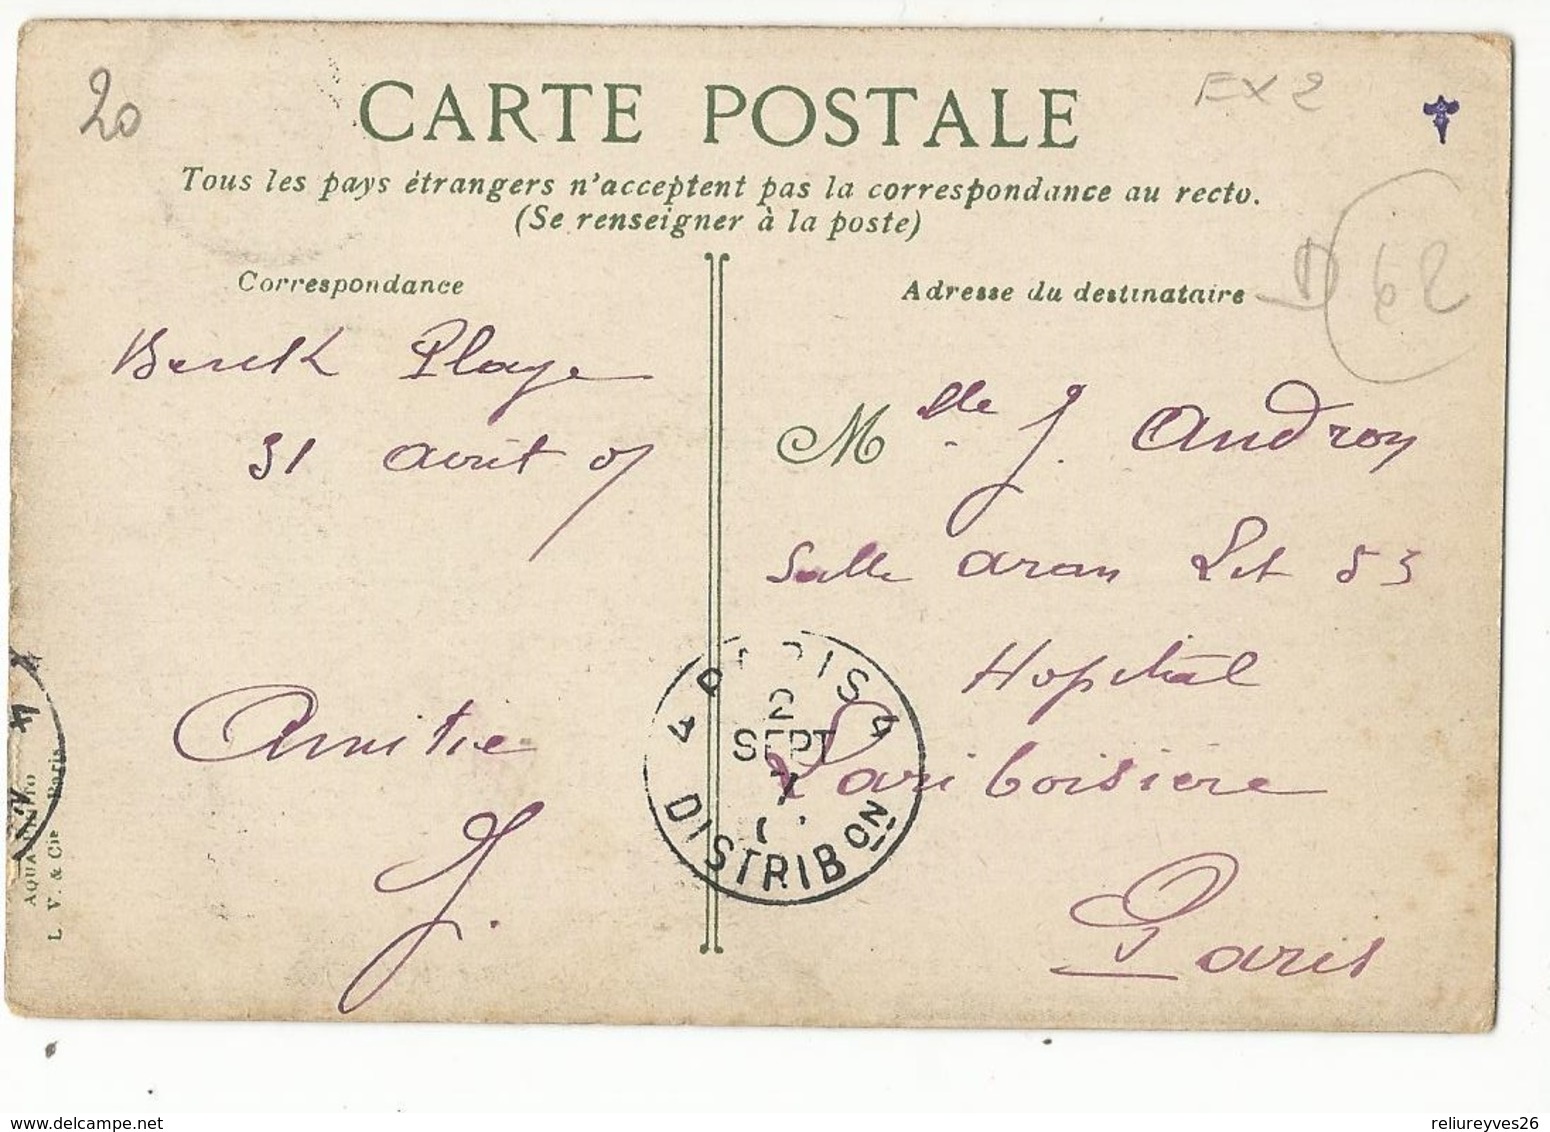 20
EX 2
CARTE POSTALE
Tous les pays étrangers n'acceptent pas la correspondance au recto.
(Se renseigner à la poste)
Correspondance
Berck Plage
31 août 07
Amitié
J.
Adresse du destinataire
D 62
Mlle J. Androy
Salle Aran Lit 53
Hopital
Lariboisière
Paris
PARIS 4
2
SEPT
7
DISTRIBON
L. V. & Cie Paris
www.delcampe.net
reliureyves26